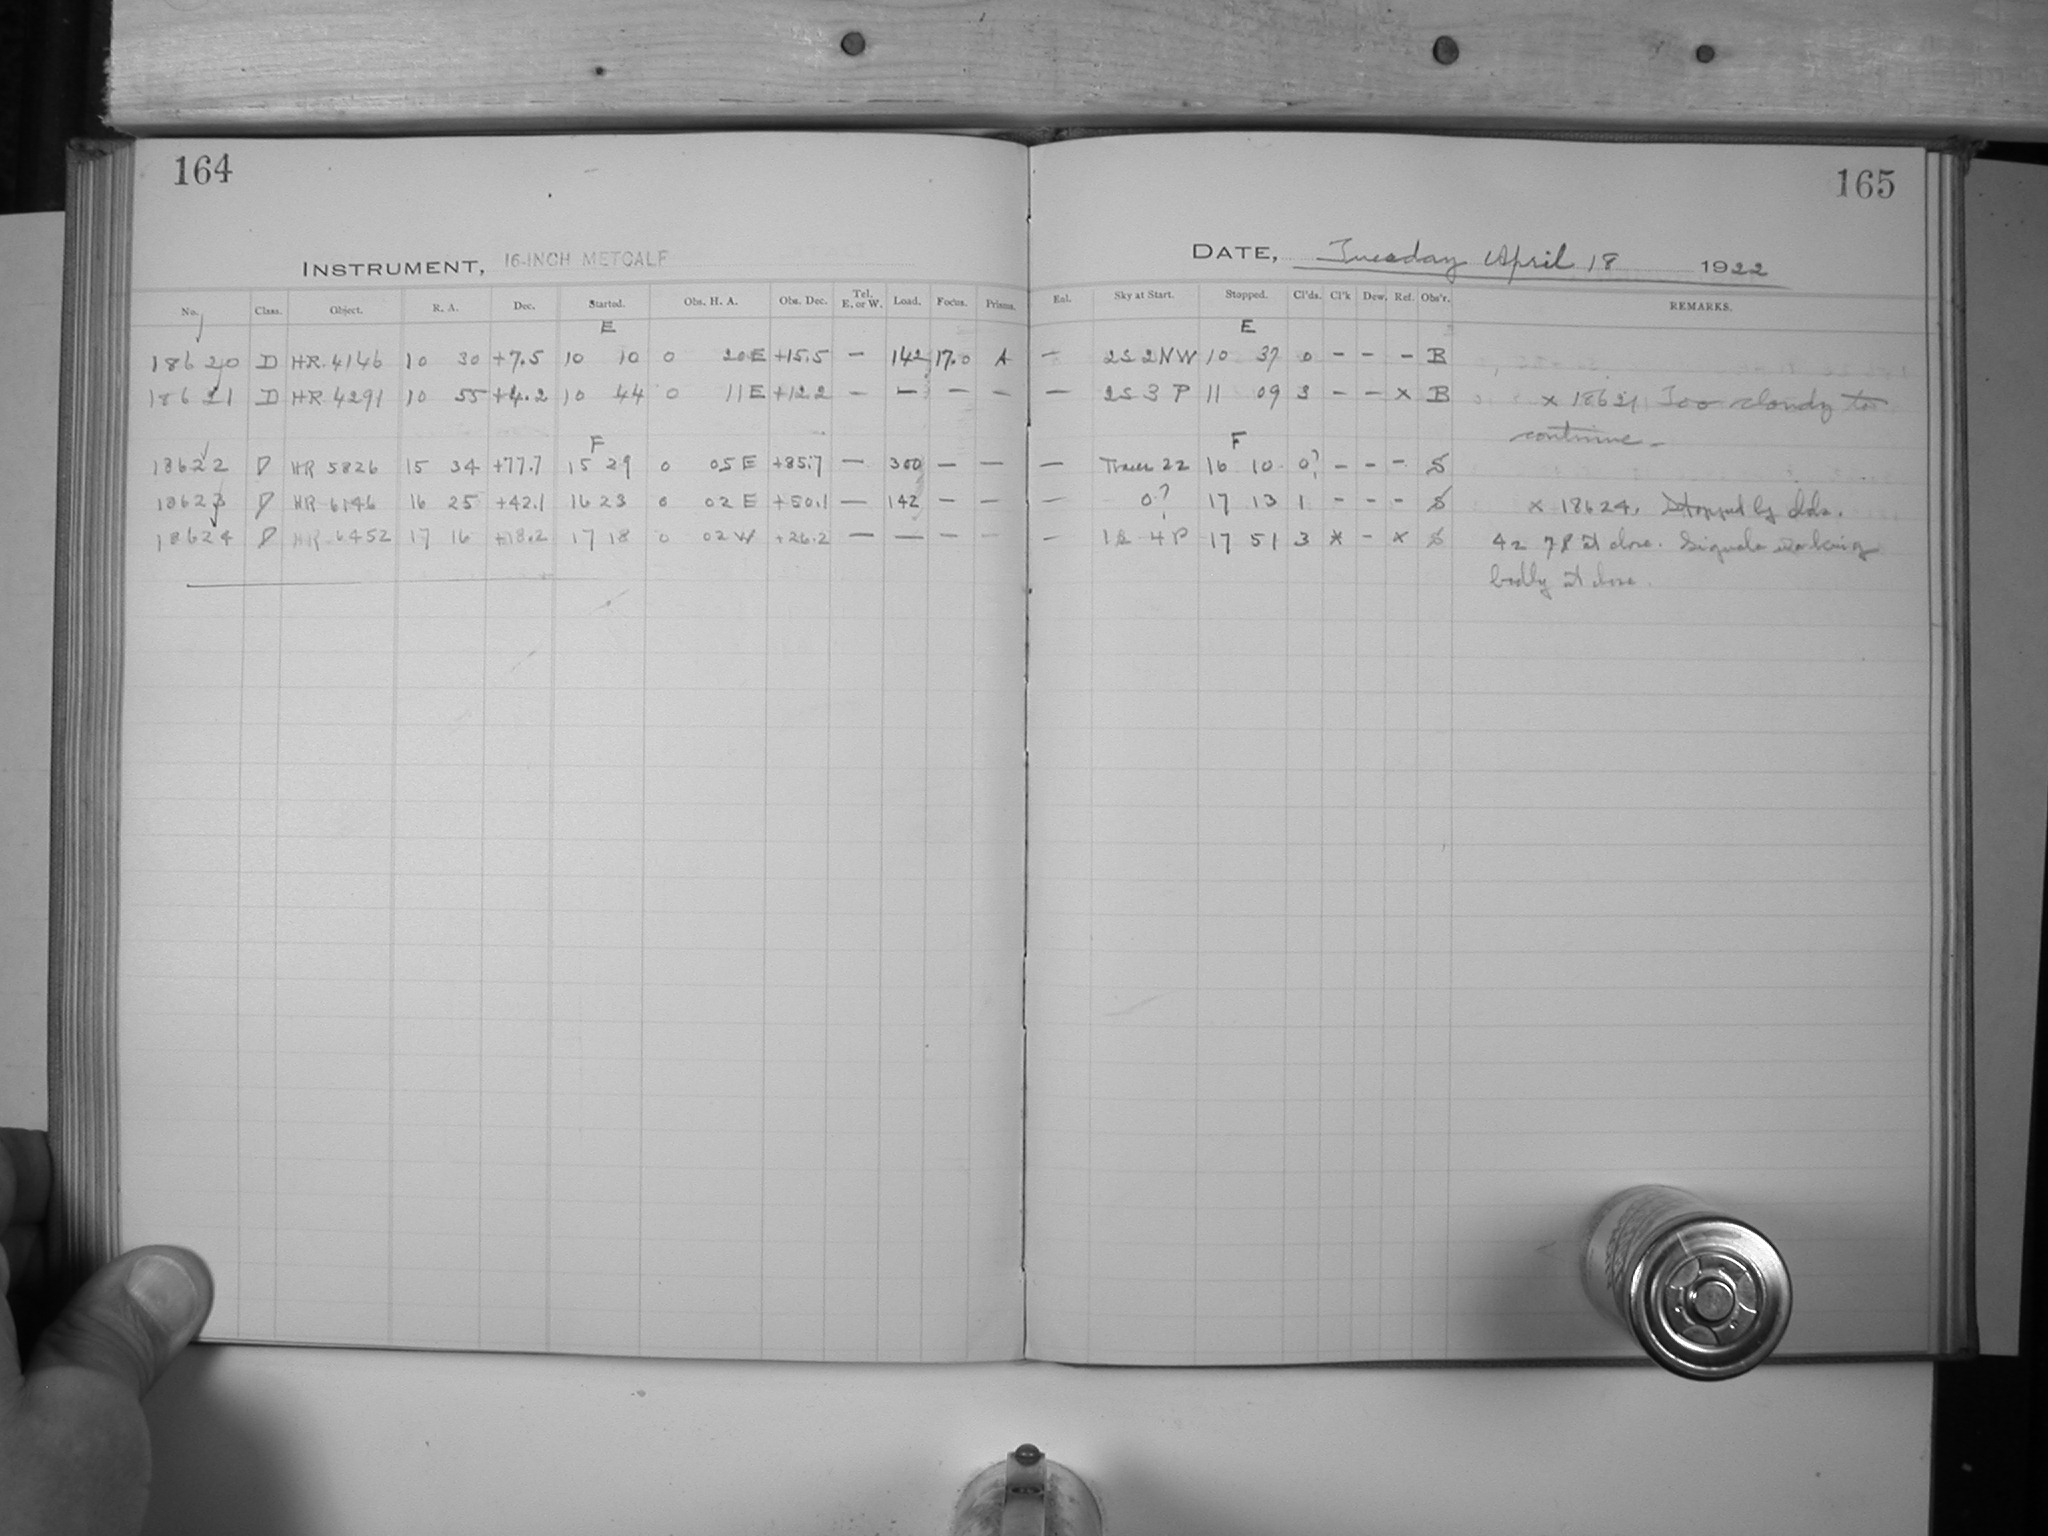 164
165
INSTRUMENT, 16-INCH METCALF
DATE, Tuesday April 18 1922
No. Class. Object. R. A. Dec. Started. Obs. H. A. Obs. Dec. Tel. E. or W. Load. Focus. Prisms. Enl. Sky at Start. Stopped. Cl'ds. Cl'k Dew. Ref. Obs'r. REMARKS.
E E
18620 D HR. 4146 10 30 +7.5 10 10 0 20 E +15.5 — 142 17.0 A — 2S 2NW 10 37 0 - - - B
18621 D HR. 4291 10 55 +4.2 10 44 0 11 E +12.2 — — — — — 2S 3 P 11 09 3 - - x B x 18621 Too cloudy to
continue —
F F
18622 D HR 5826 15 34 +77.7 15 29 0 05 E +85.7 — 300 — — — Traces 22 16 10 0? - - - S
18623 D HR 6146 16 25 +42.1 16 23 0 02 E +50.1 — 142 — — — 0? 17 13 1 - - - S x 18624. Stopped by clds.
18624 D HR 6452 17 16 +18.2 17 18 0 02 W +26.2 — — — — — 4P 17 51 3 * - x S at close. Signals working
badly at close.